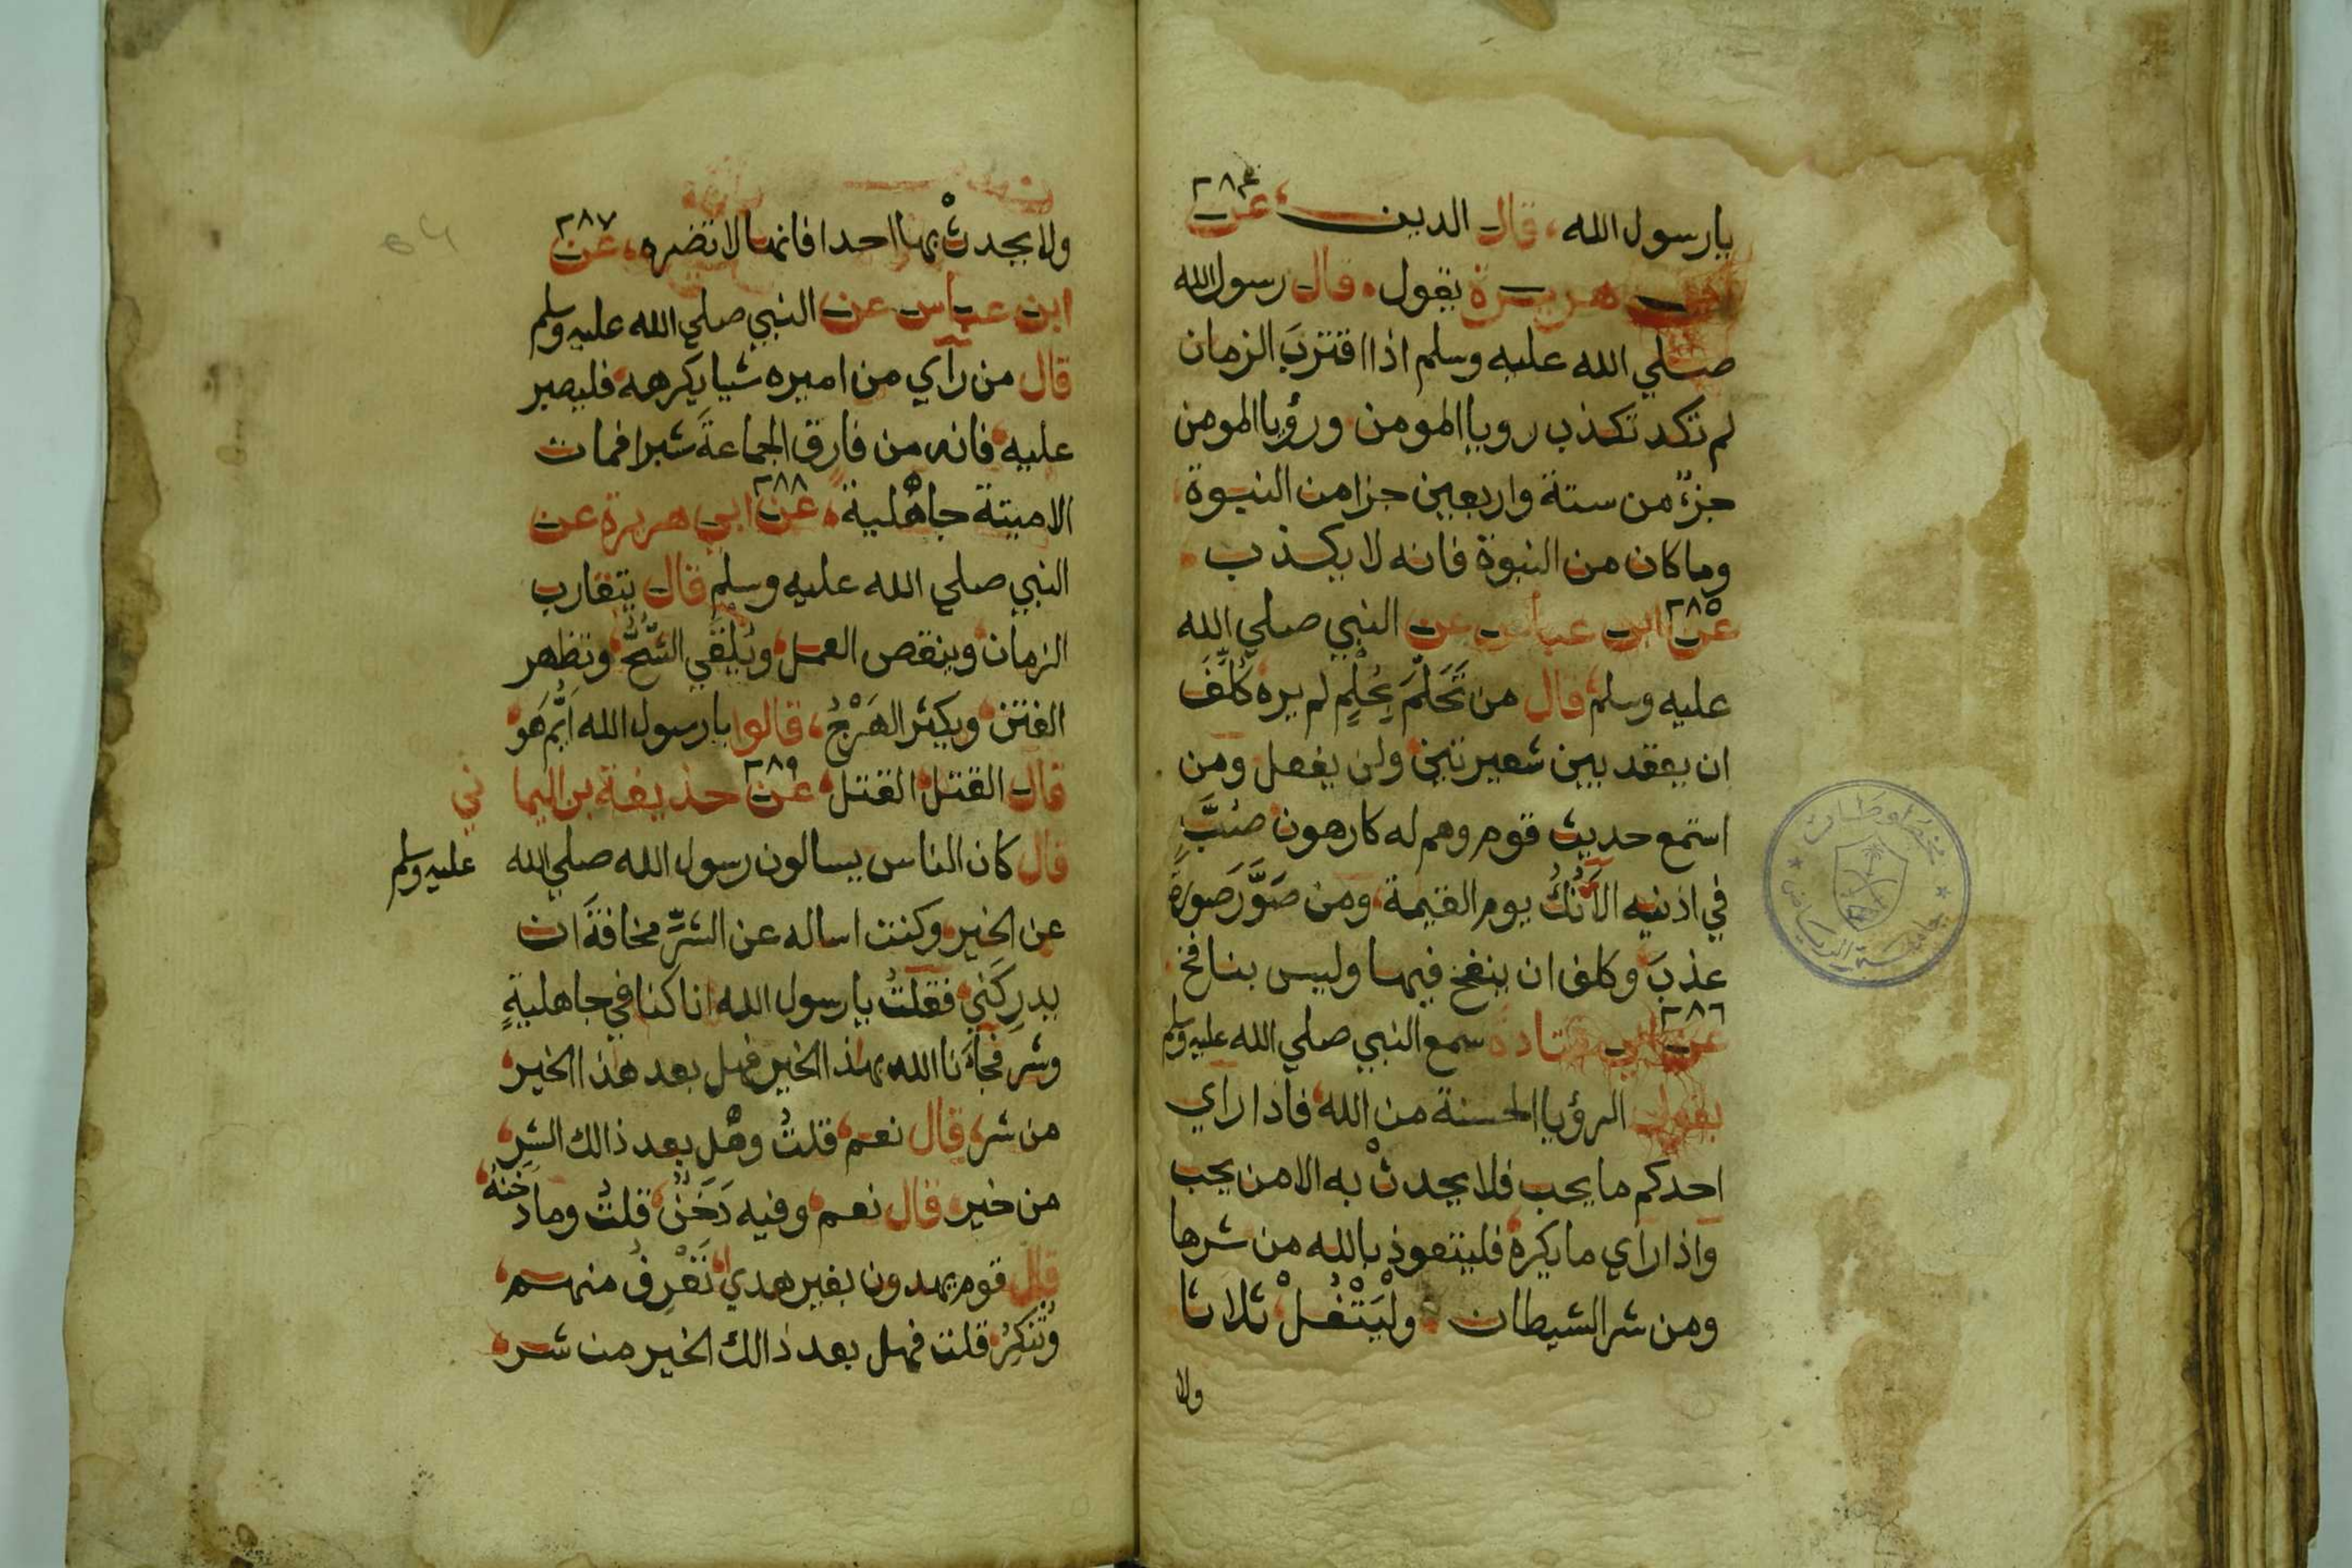 يارسول الله قال الدين عن ٢٨٤
هريرة يقول قال رسول الله
صلي الله عليه وسلم اذا اقتربَ الزمان
لم تكد تكذب رويا المومن ورؤيا المومن
جزءٌ من ستة واربعين جزا من النبوة
وما كان من النبوة فانه لا يكذب
٢٨٥
عن ابن عباس عن النبي صلي الله
عليه وسلم قال من تَحَلَّمَ بِحُلْمٍ لم يره كُلِّفَ
ان يعقد بين شعيرتين ولن يفعل ومن
استمع حديث قوم وهم له كارهون صُبَّ
في اذنيه الآنُكُ يوم القيمة ومن صَوَّرَ صورَة
عذبَ وكلف ان ينفخ فيها وليس بنافخ
٢٨٦
عن ابي قتادة سمع النبي صلي الله عليه وسلم
يقول الرؤيا الحسنة من الله فاذا راي
احدكم ما يحب فلا يحدثْ به الا من يحب
واذا راي ما يكره فليتعوذ بالله من شرها
ومن شر الشيطان ولْيَتْفُلْ ثلاثا
ولا
ولا يحدثْ بها احدا فانها لا تضره عن ٢٨٧
ابن عباس عن النبي صلي الله عليه وسلم
قال من رأي من اميره شيا يكرهه فليصبر
عليه فانه من فارق الجماعةَ شبرا فمات
الا ميتة جاهلية عن ٢٨٨ ابي هريرة عن
النبي صلي الله عليه وسلم قال يتقارب
الزمان وينقص العمل ويُلْقَي الشُّحُّ وتظهر
الفتن ويكثر الهَرْجُ قالوا يارسول الله ايُّمَ هَو
قال القتل القتل عن ٢٨٩ حذيفة بن اليماني
قال كان الناس يسالون رسول الله صلي الله عليه وسلم
عن الخير وكنت اساله عن الشرِّ مخافةَ ان
يدركَني فقلتُ يارسول الله انا كنا في جاهليةٍ
وشر فجاءَنا الله بهذا الخير فهل بعد هذا الخير
من شر قال نعم قلتُ وهل بعد ذالك الشر
من خير قال نعم وفيه دَخَنٌ قلتُ وما دَخَنُهُ
قال قوم يهدون بغير هدي تَعْرِفُ منهم
وتُنكِرُ قلت فهل بعد ذالك الخير من شر
مخطوطات
جامعة الرياض